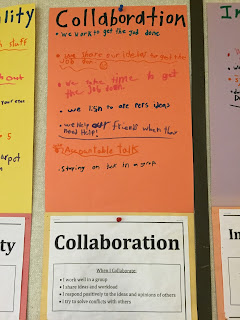 Collaboration
• we work to get the job done
• we share our ideas to get the
job done
• we take time to get
the job done
• we lisin to are pers ideas
• we help our friends when thay
need help!
Accountable Talk
• Staying on task in a grop
ility
h stuff
5
In
Collaboration
When I Collaborate:
I work well in a group
I share ideas and workload
I respond positively to the ideas and opinions of others
I try to solve conflicts with others
ty
In